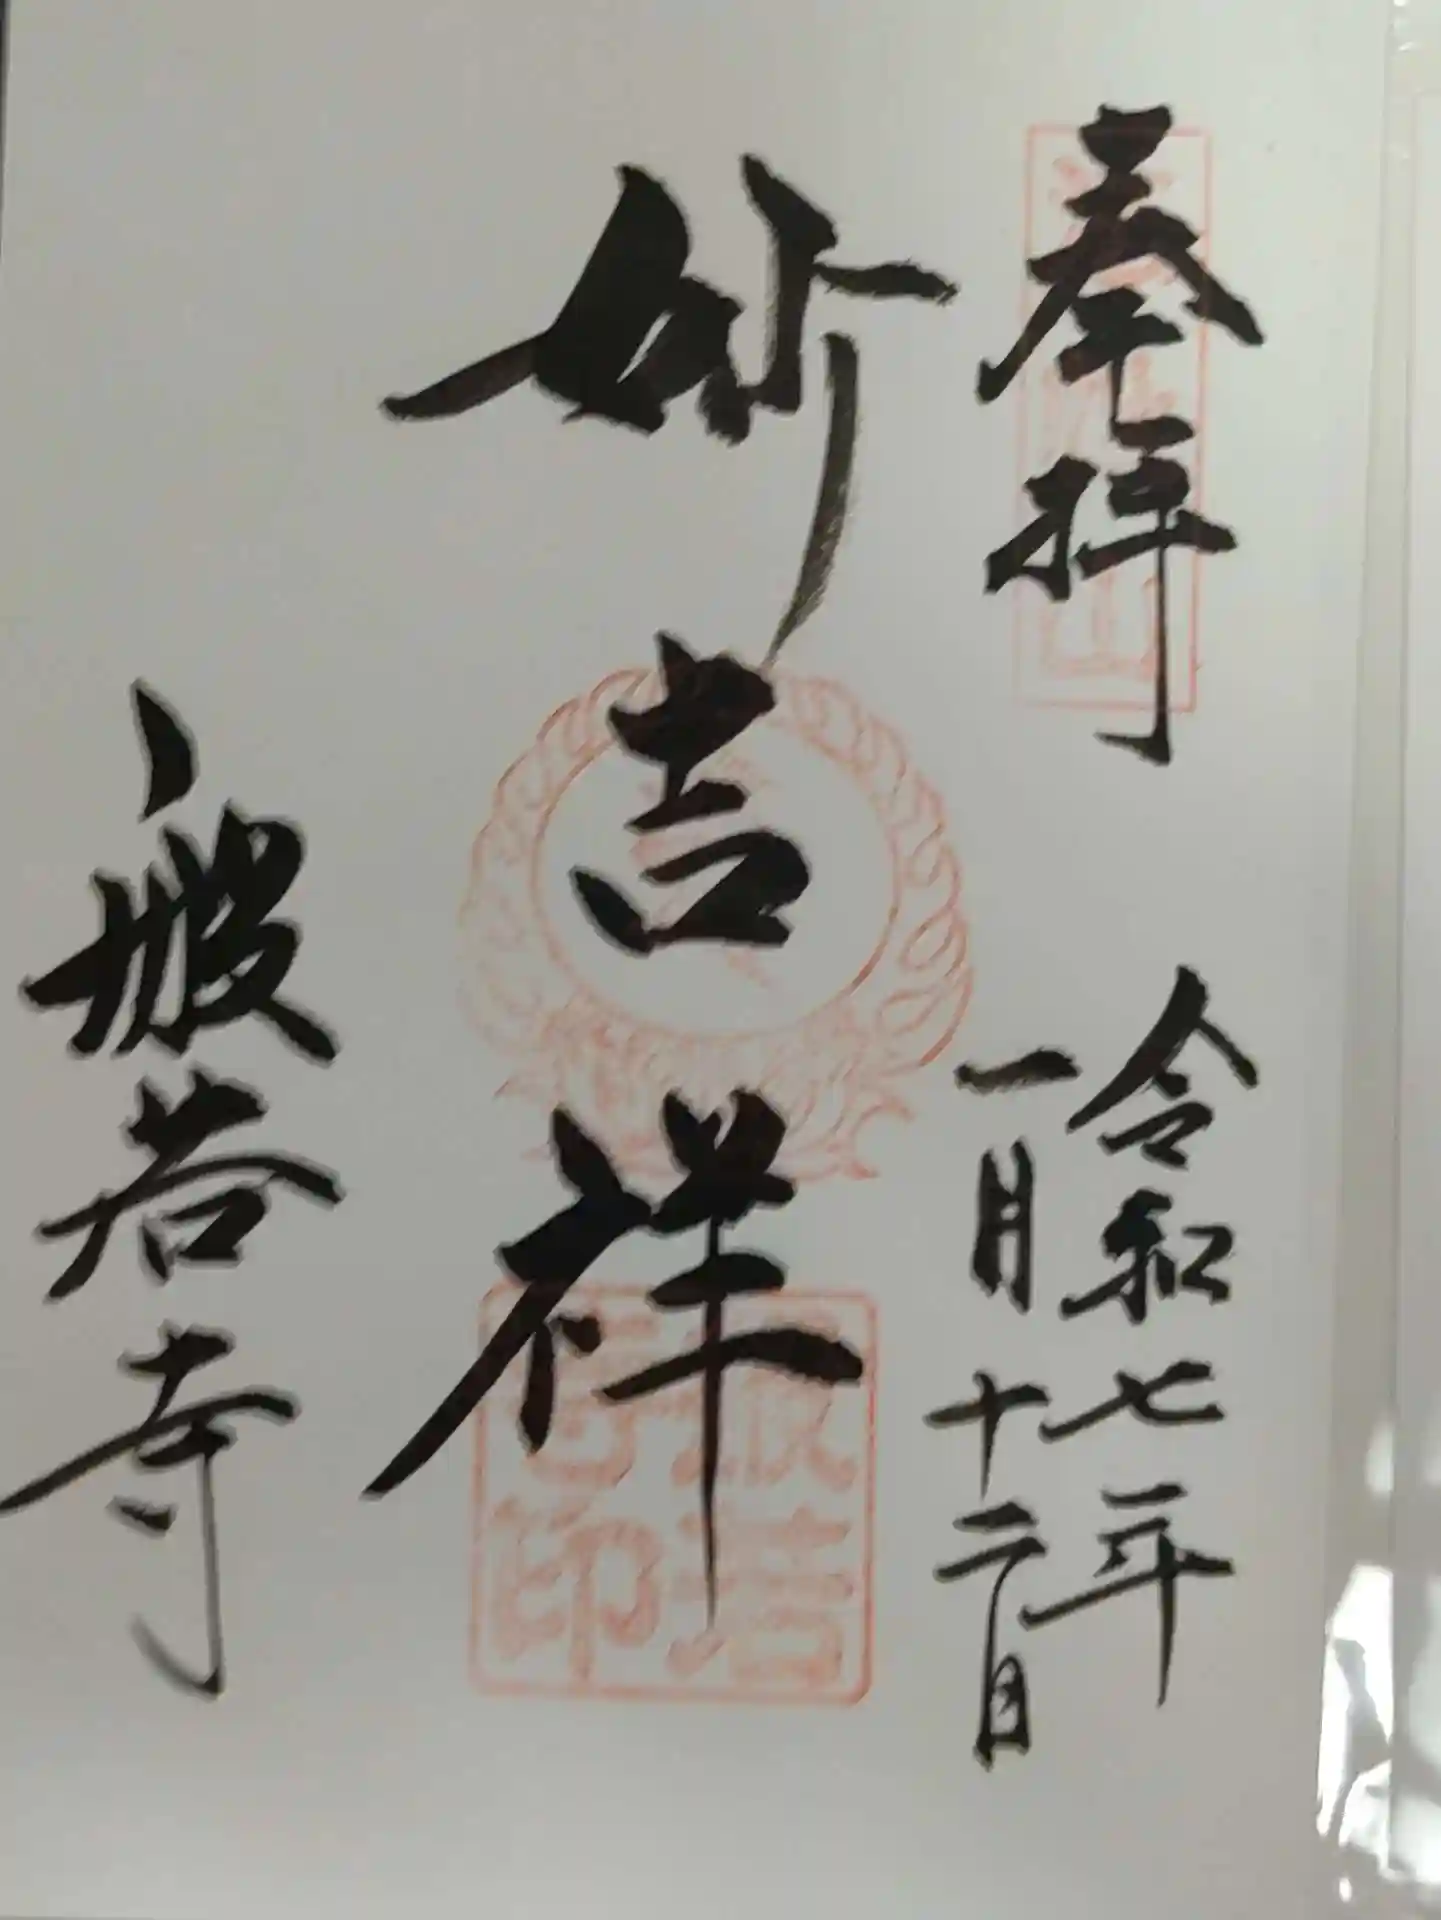 奉拝
令和七年
一月十二日
妙吉祥
般若寺
般若
寺印